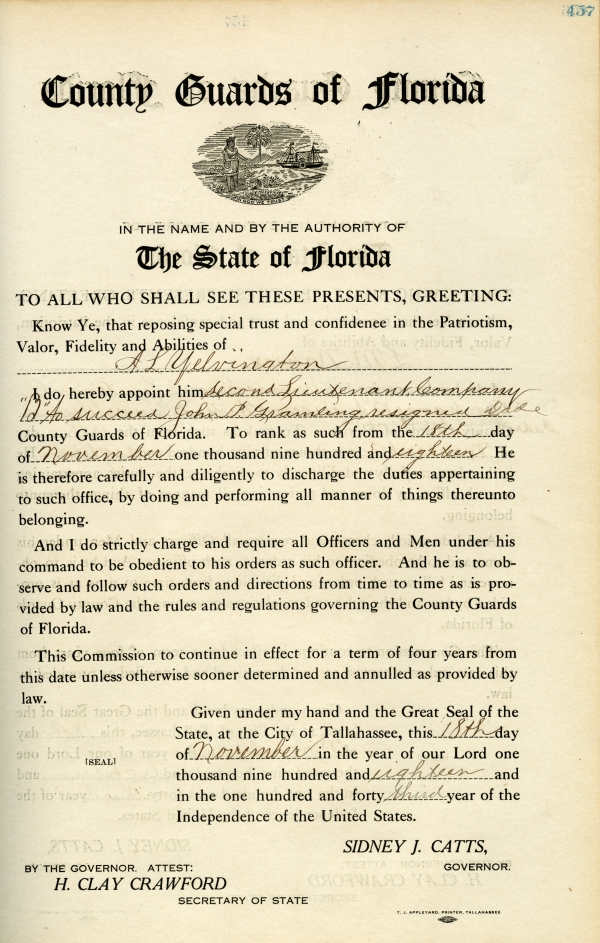 457
County Guards of Florida
IN GOD WE TRUST
IN THE NAME AND BY THE AUTHORITY OF
The State of Florida
TO ALL WHO SHALL SEE THESE PRESENTS, GREETING:
Know Ye, that reposing special trust and confidence in the Patriotism,
Valor, Fidelity and Abilities of
A L Yelvington
I do hereby appoint him Second Lieutenant Company
"B" to succeed John F Gramling resigned Dade
County Guards of Florida. To rank as such from the 18th day
of November one thousand nine hundred and eighteen He
is therefore carefully and diligently to discharge the duties appertaining
to such office, by doing and performing all manner of things thereunto
belonging.
And I do strictly charge and require all Officers and Men under his
command to be obedient to his orders as such officer. And he is to ob-
serve and follow such orders and directions from time to time as is pro-
vided by law and the rules and regulations governing the County Guards
of Florida.
This Commission to continue in effect for a term of four years from
this date unless otherwise sooner determined and annulled as provided by
law.
Given under my hand and the Great Seal of the
State, at the City of Tallahassee, this 18th day
of November in the year of our Lord one
[SEAL]
thousand nine hundred and eighteen and
in the one hundred and forty third year of the
Independence of the United States.
SIDNEY J. CATTS,
GOVERNOR.
BY THE GOVERNOR. ATTEST:
H. CLAY CRAWFORD
SECRETARY OF STATE
T. J. APPLEYARD, PRINTER, TALLAHASSEE